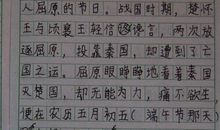 人屈原的节日。战国时期，楚怀
王与顷襄王轻信谗言，两次放
逐屈原，投靠秦国，却遭到了亡
国之运。屈原眼睁睁地看着秦国
灭楚国，却无能为力，痛不欲生
便在农历五月初五（端午节那天